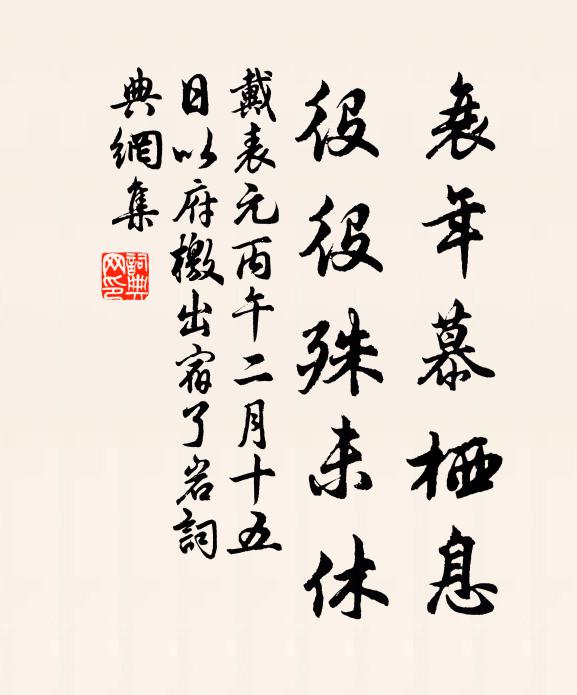 衰年慕栖息
役役殊未休
戴表元丙午二月十五
日以府檄出宿了岩詞
典網集
詞典
网印